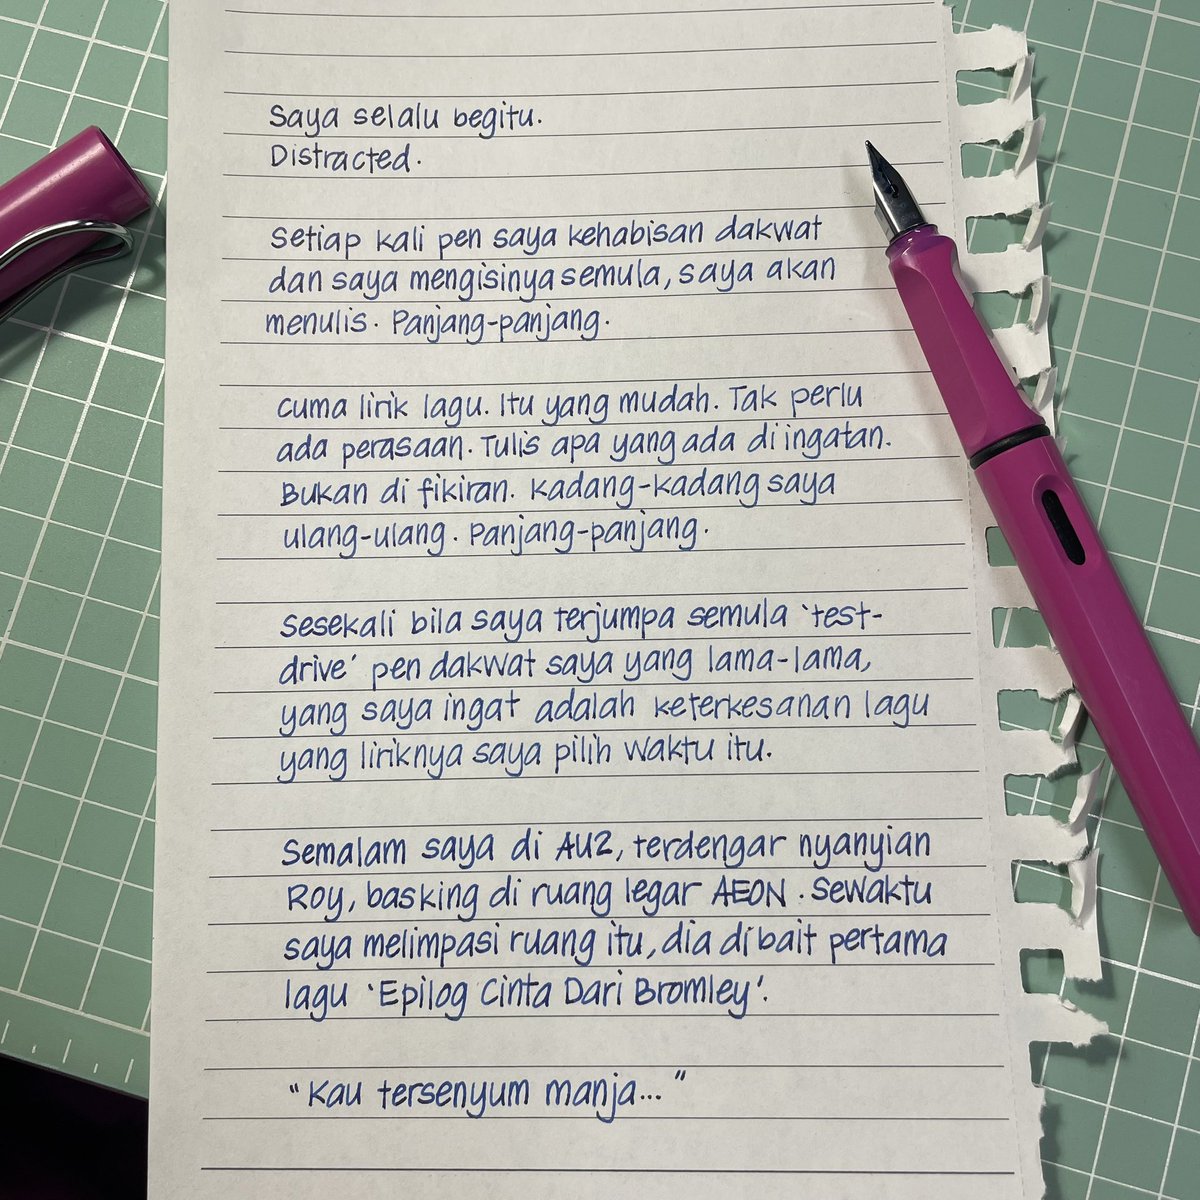 Saya selalu begitu.
Distracted.
Setiap kali pen saya kehabisan dakwat
dan saya mengisinya semula, saya akan
menulis. Panjang-panjang.
Cuma lirik lagu. Itu yang mudah. Tak perlu
ada perasaan. Tulis apa yang ada di ingatan.
Bukan di fikiran. Kadang-kadang saya
ulang-ulang. Panjang-panjang.
Sesekali bila saya terjumpa semula 'test-
drive' pen dakwat saya yang lama-lama,
yang saya ingat adalah keterkesanan lagu
yang liriknya saya pilih waktu itu.
Semalam saya di AU2, terdengar nyanyian
Roy, basking di ruang legar AEON. Sewaktu
saya melimpasi ruang itu, dia di bait pertama
lagu 'Epilog Cinta Dari Bromley'.
"Kau tersenyum manja..."